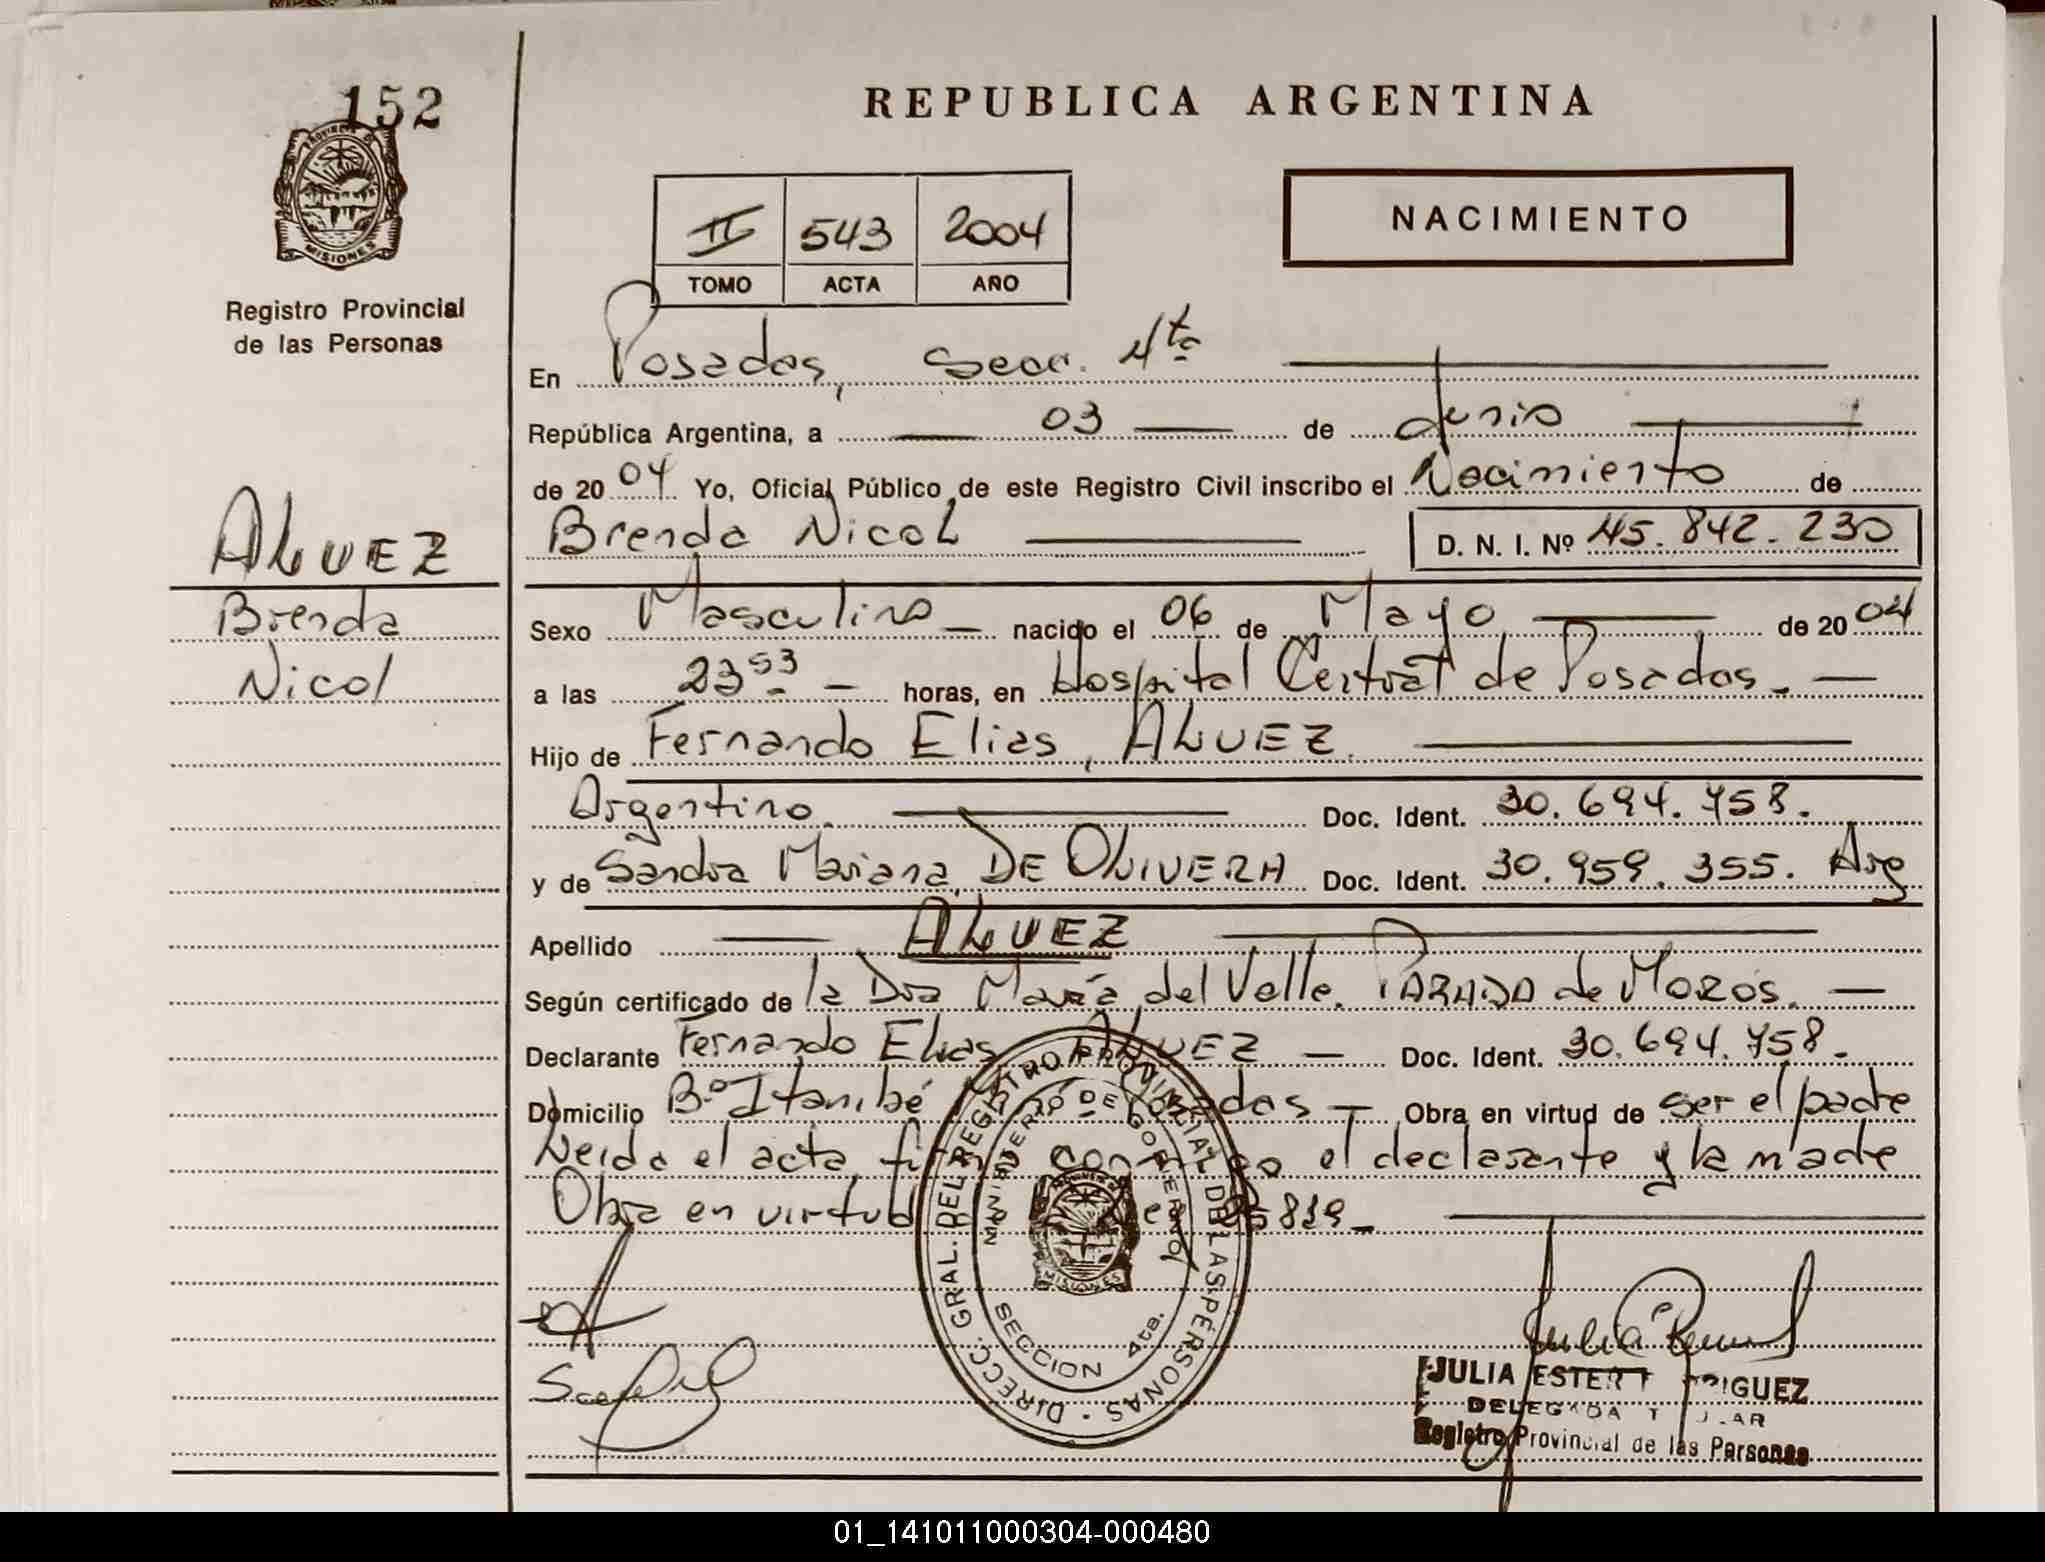 152
PROVINCIA DE
MISIONES
Registro Provincial
de las Personas
ALVEZ
Brenda
Nicol
REPUBLICA ARGENTINA
II 543 2004
TOMO ACTA AÑO
NACIMIENTO
En Posadas, Secc. 4ta
República Argentina, a 03 de Junio
de 2004 Yo, Oficial Público de este Registro Civil inscribo el Nacimiento de
Brenda Nicol D. N. I. Nº 45.842.230
Sexo Masculino nacido el 06 de Mayo de 2004
a las 23 53 horas, en Hospital Central de Posadas.
Hijo de Fernando Elias, ALVEZ.
Argentino. Doc. Ident. 30.694.758.
y de Sandra Mariana, DE OLIVERA Doc. Ident. 30.959.355. Arg
Apellido ALVEZ
Según certificado de la Dra María del Valle. PARADA de MOROS.
Declarante Fernando Elias ALVEZ Doc. Ident. 30.694.758.
Domicilio Bº Itanibé Posadas Obra en virtud de ser el padre
Leida el acta, el declarante y la madre
Obra en virtud 819
DIRECC. GRAL. DEL REGISTRO PROVINCIAL DE LAS PERSONAS
MINISTERIO DE GOBIERNO
MISIONES
SECCION 4ta.
JULIA ESTER
DELEGADA
Registro Provincial de las Personas
01_141011000304-000480